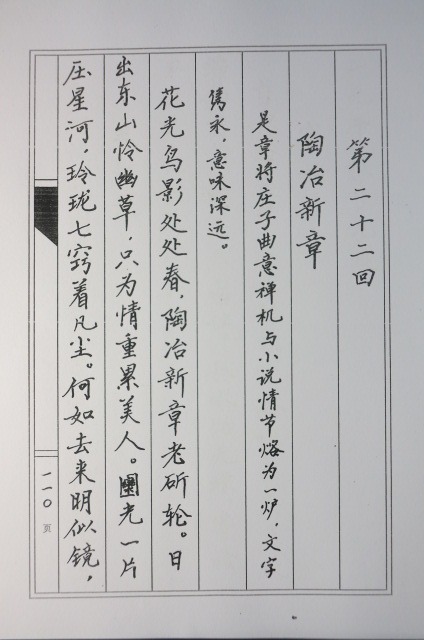 第二十二回
陶冶新章
是章将庄子曲意禅机与小说情节熔为一炉，文字
隽永，意味深远。
花光鸟影处处春，陶冶新章老斫轮。日
出东山怜幽草，只为情重累美人。圆光一片
压星河，玲珑七窍着凡尘。何如去来明似镜，
一一〇页